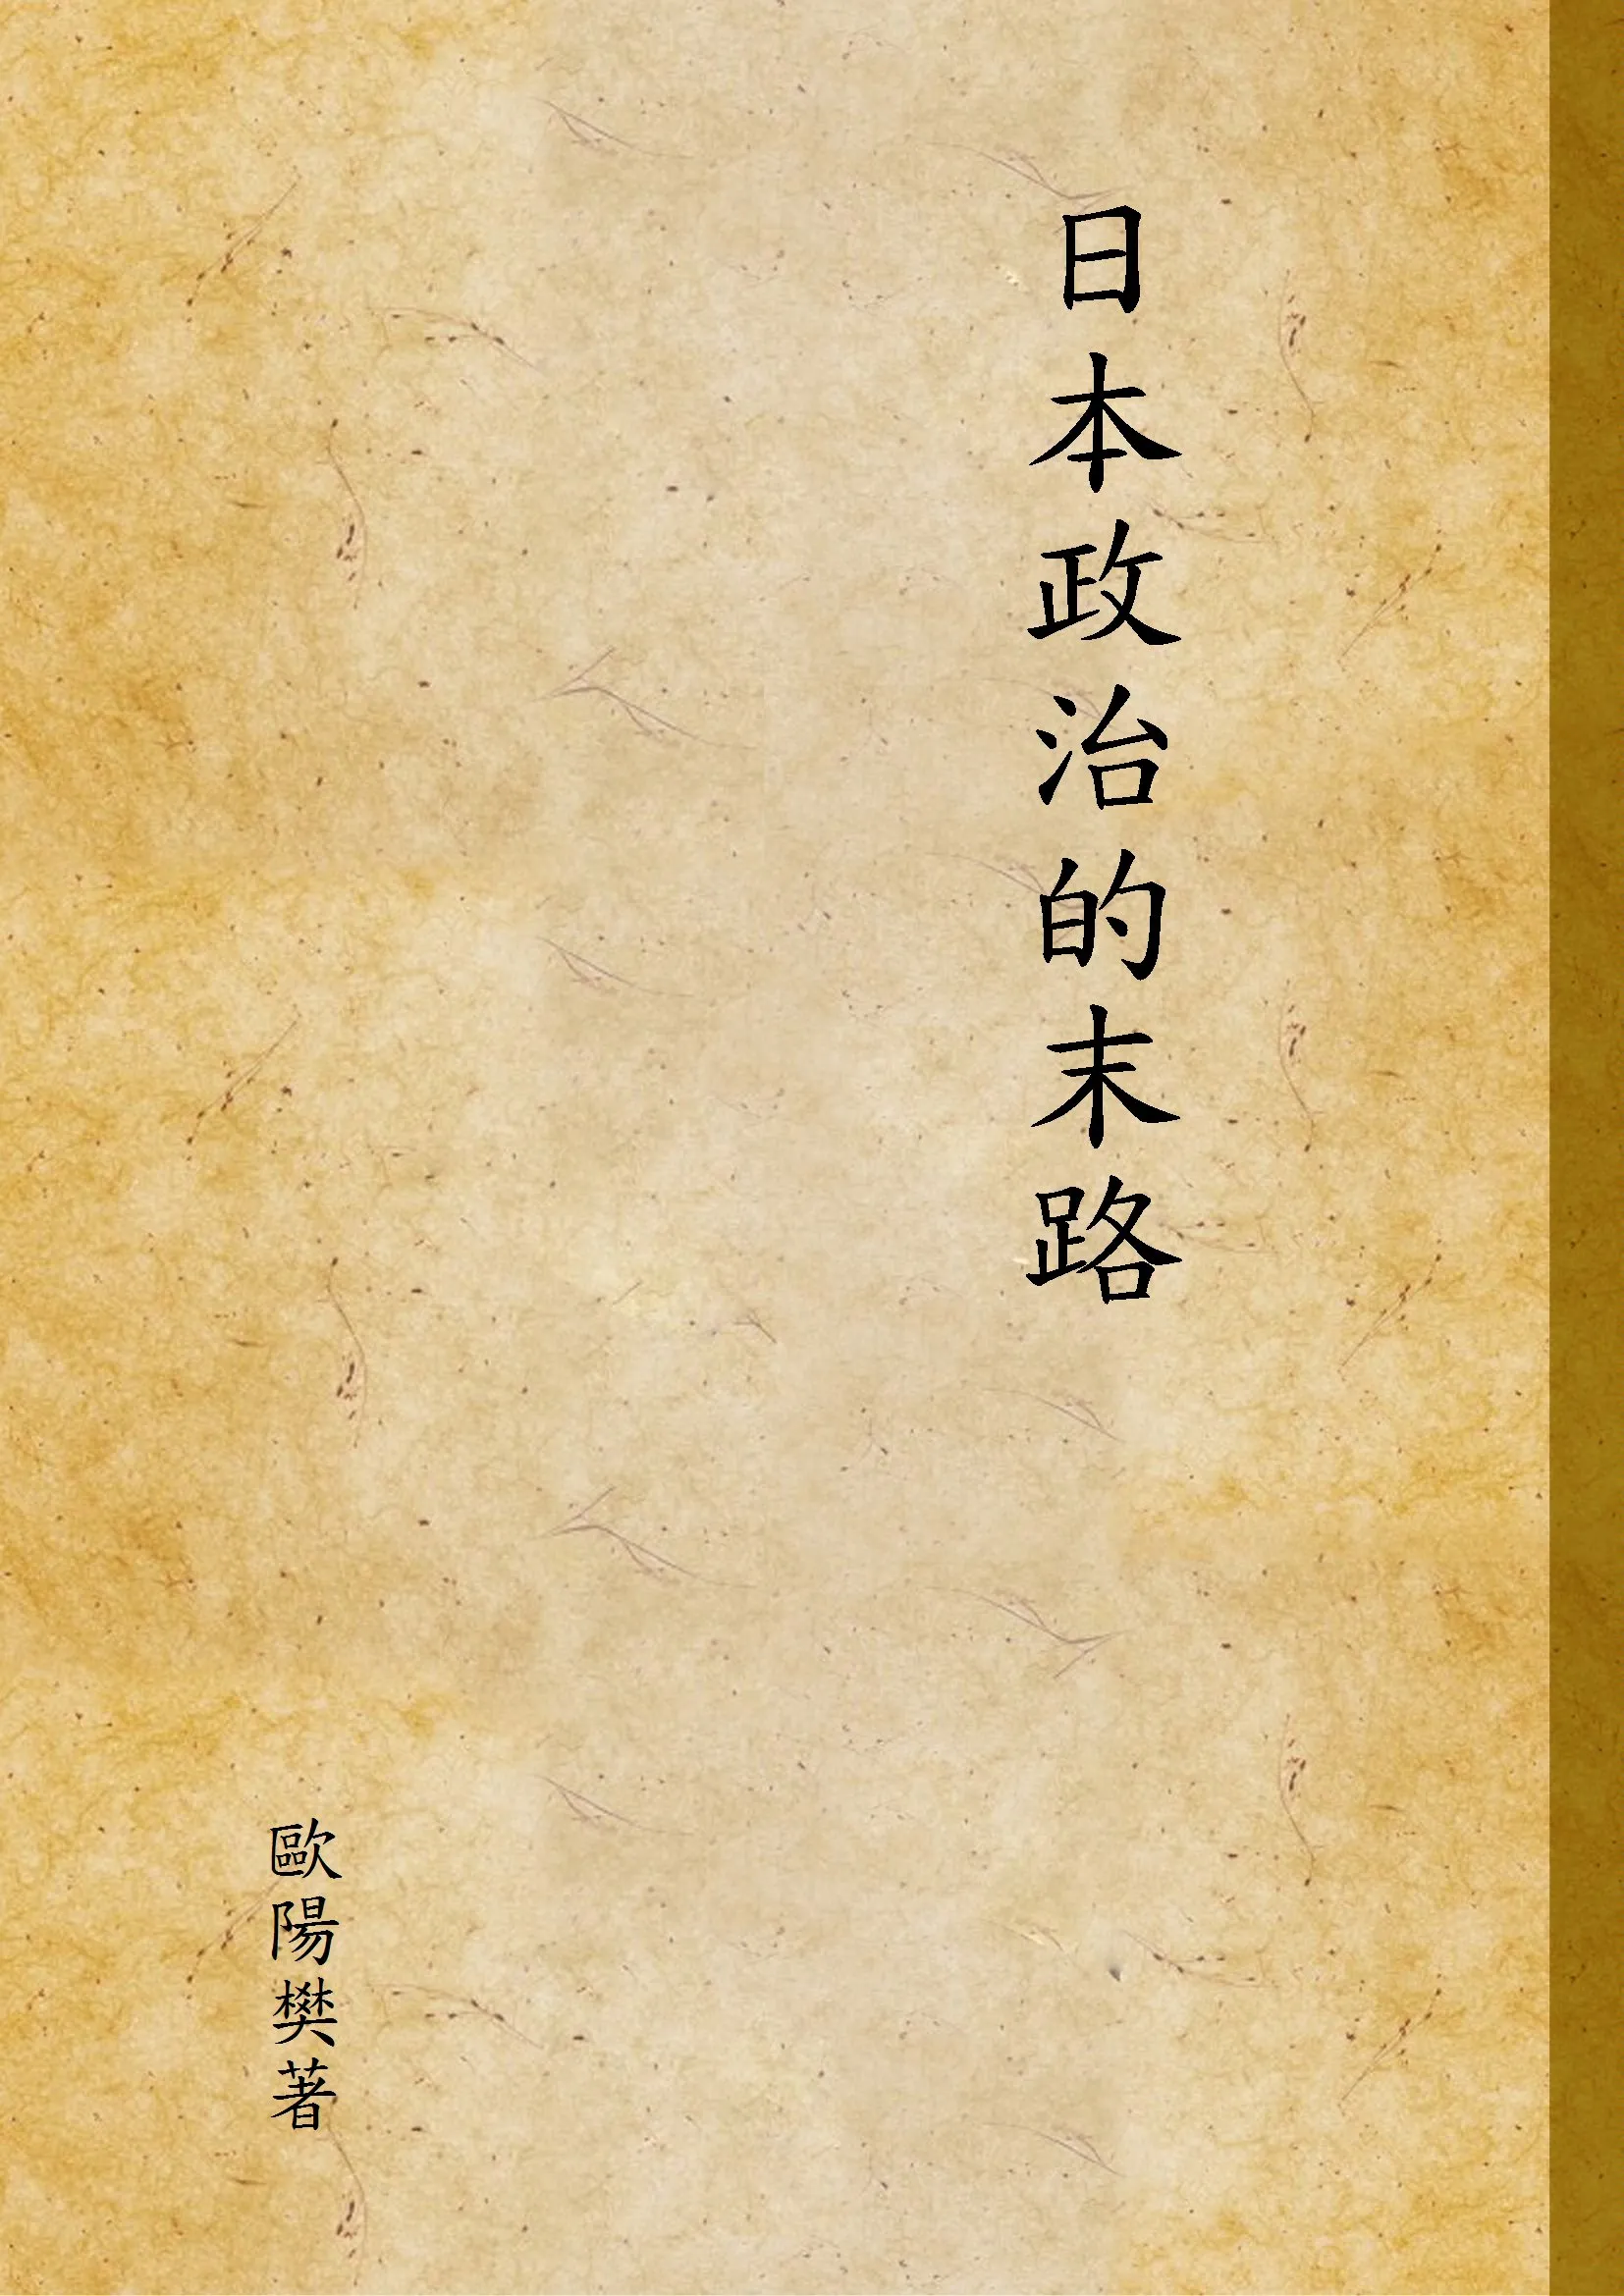 日本政治的末路
歐陽樊著